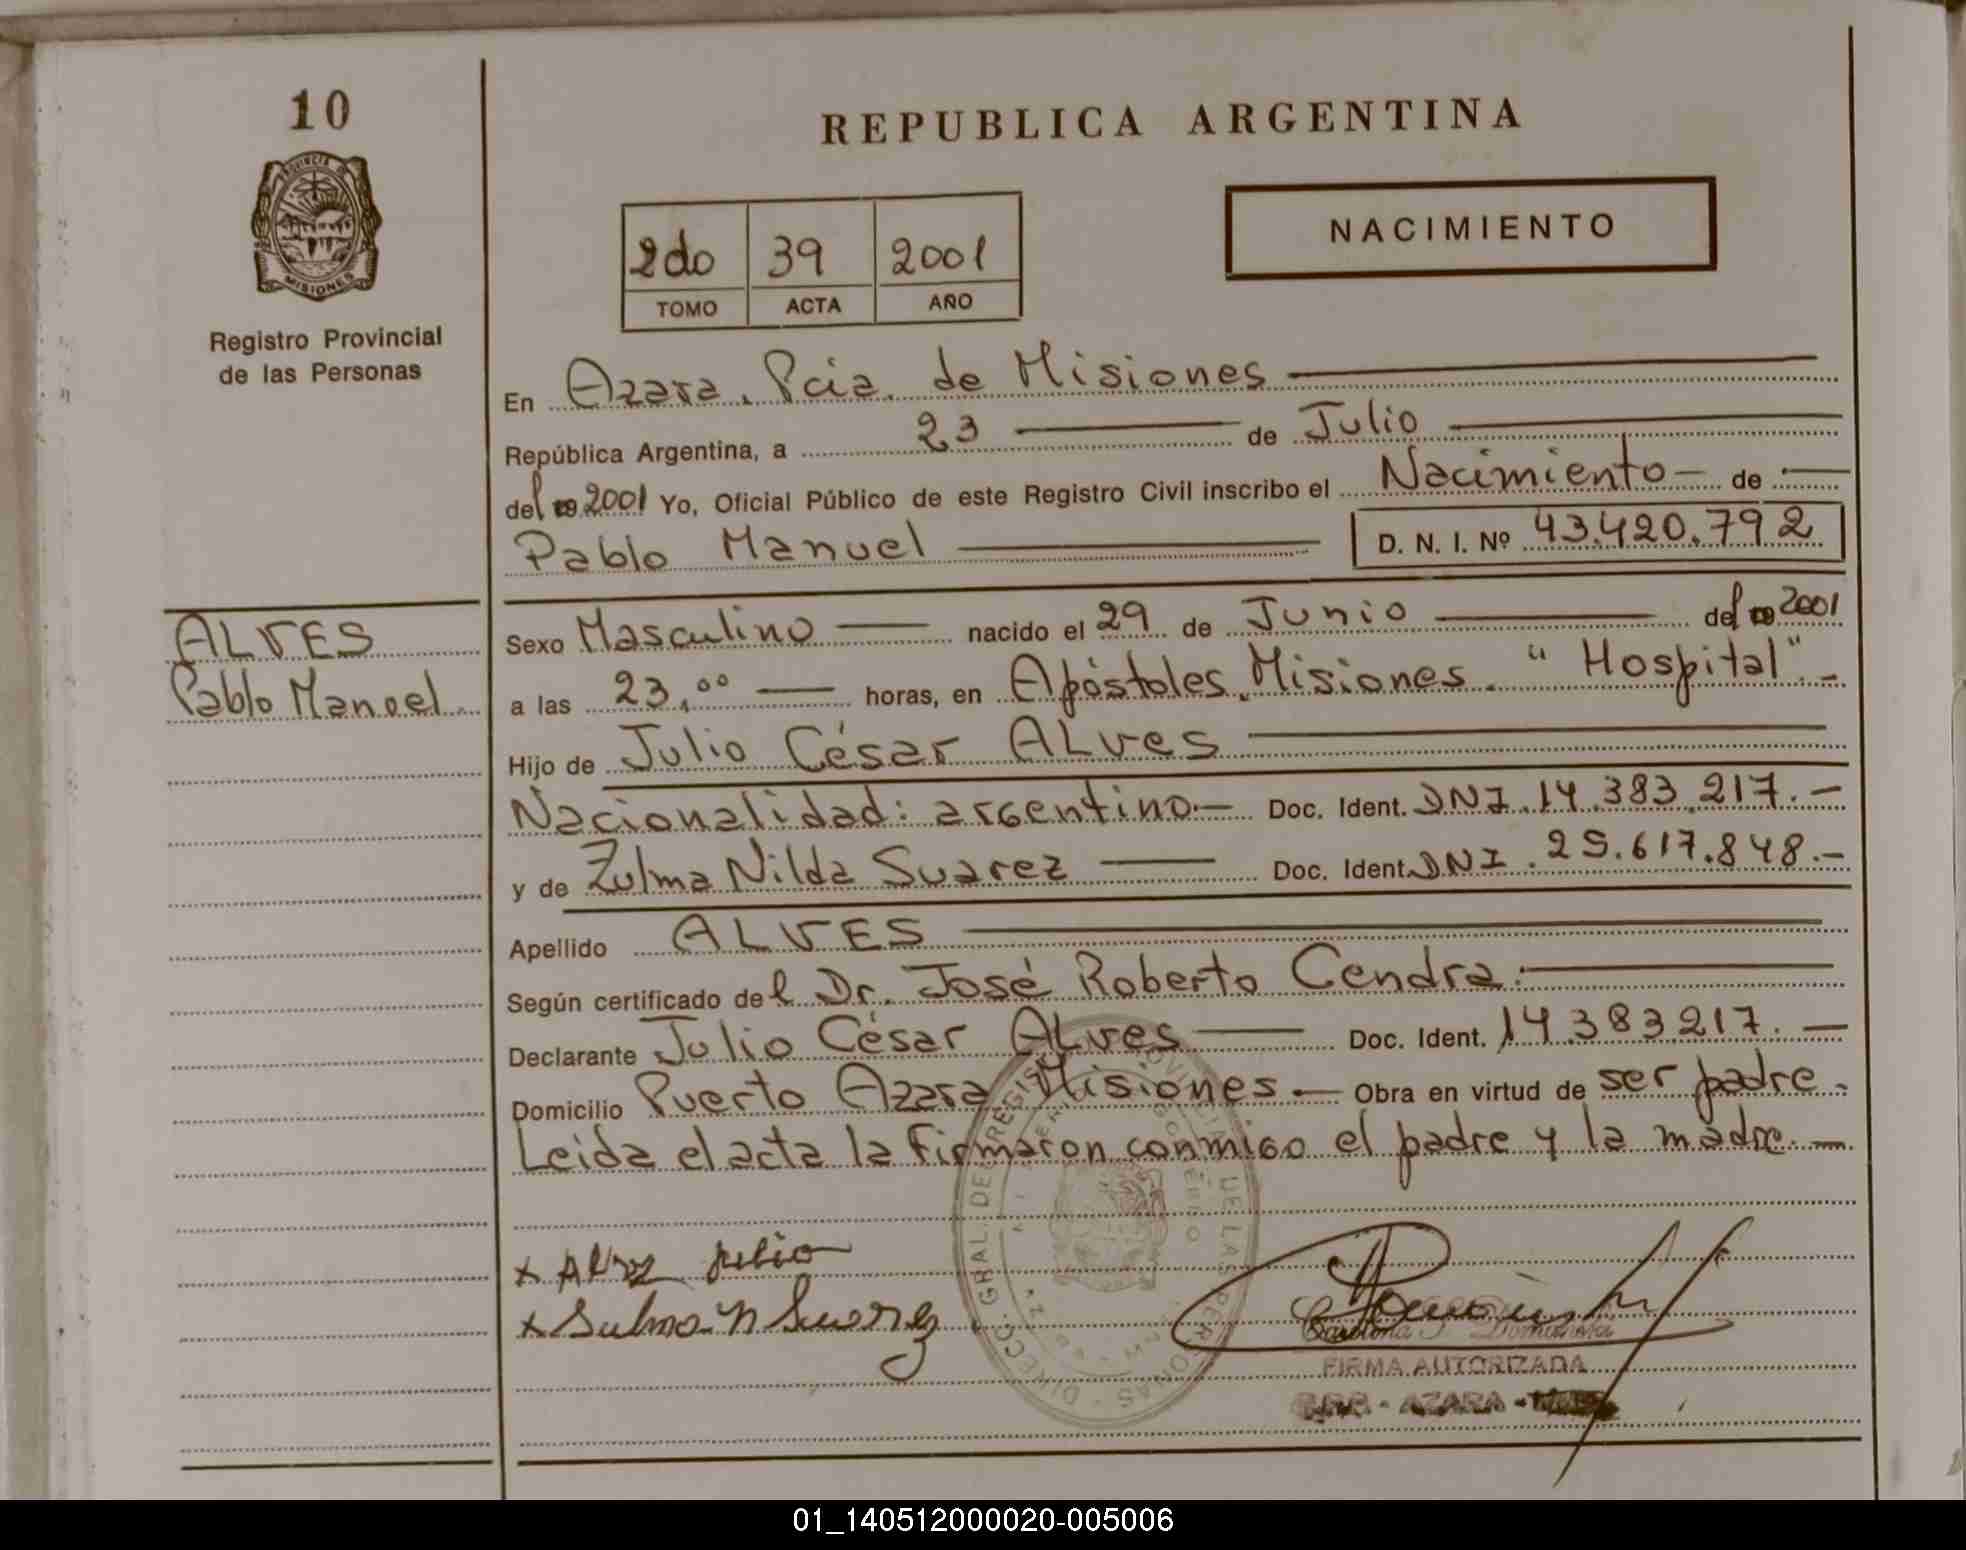 10
PROVINCIA DE
MISIONES
Registro Provincial
de las Personas
REPUBLICA ARGENTINA
2do 39 2001
TOMO ACTA AÑO
NACIMIENTO
En Azara, Pcia. de Misiones
República Argentina, a 23 de Julio
del 2001 Yo, Oficial Público de este Registro Civil inscribo el Nacimiento de
Pablo Manuel D. N. I. Nº 43.420.792
ALVES
Pablo Manuel
Sexo Masculino nacido el 29 de Junio del 2001
a las 23,00 horas, en Apóstoles, Misiones. "Hospital".
Hijo de Julio César Alves
Nacionalidad: argentino Doc. Ident. DNI. 14.383.217.-
y de Zulma Nilda Suarez Doc. Ident. DNI. 25.617.848.-
Apellido ALVES
Según certificado del Dr. José Roberto Cendra.
Declarante Julio César Alves Doc. Ident. 14.383.217.-
Domicilio Puerto Azara Misiones.- Obra en virtud de ser padre.
Leida el acta la firmaron conmigo el padre y la madre.
x Alvez Julio
x Sulma N Suarez
FIRMA AUTORIZADA
AZARA
01_140512000020-005006